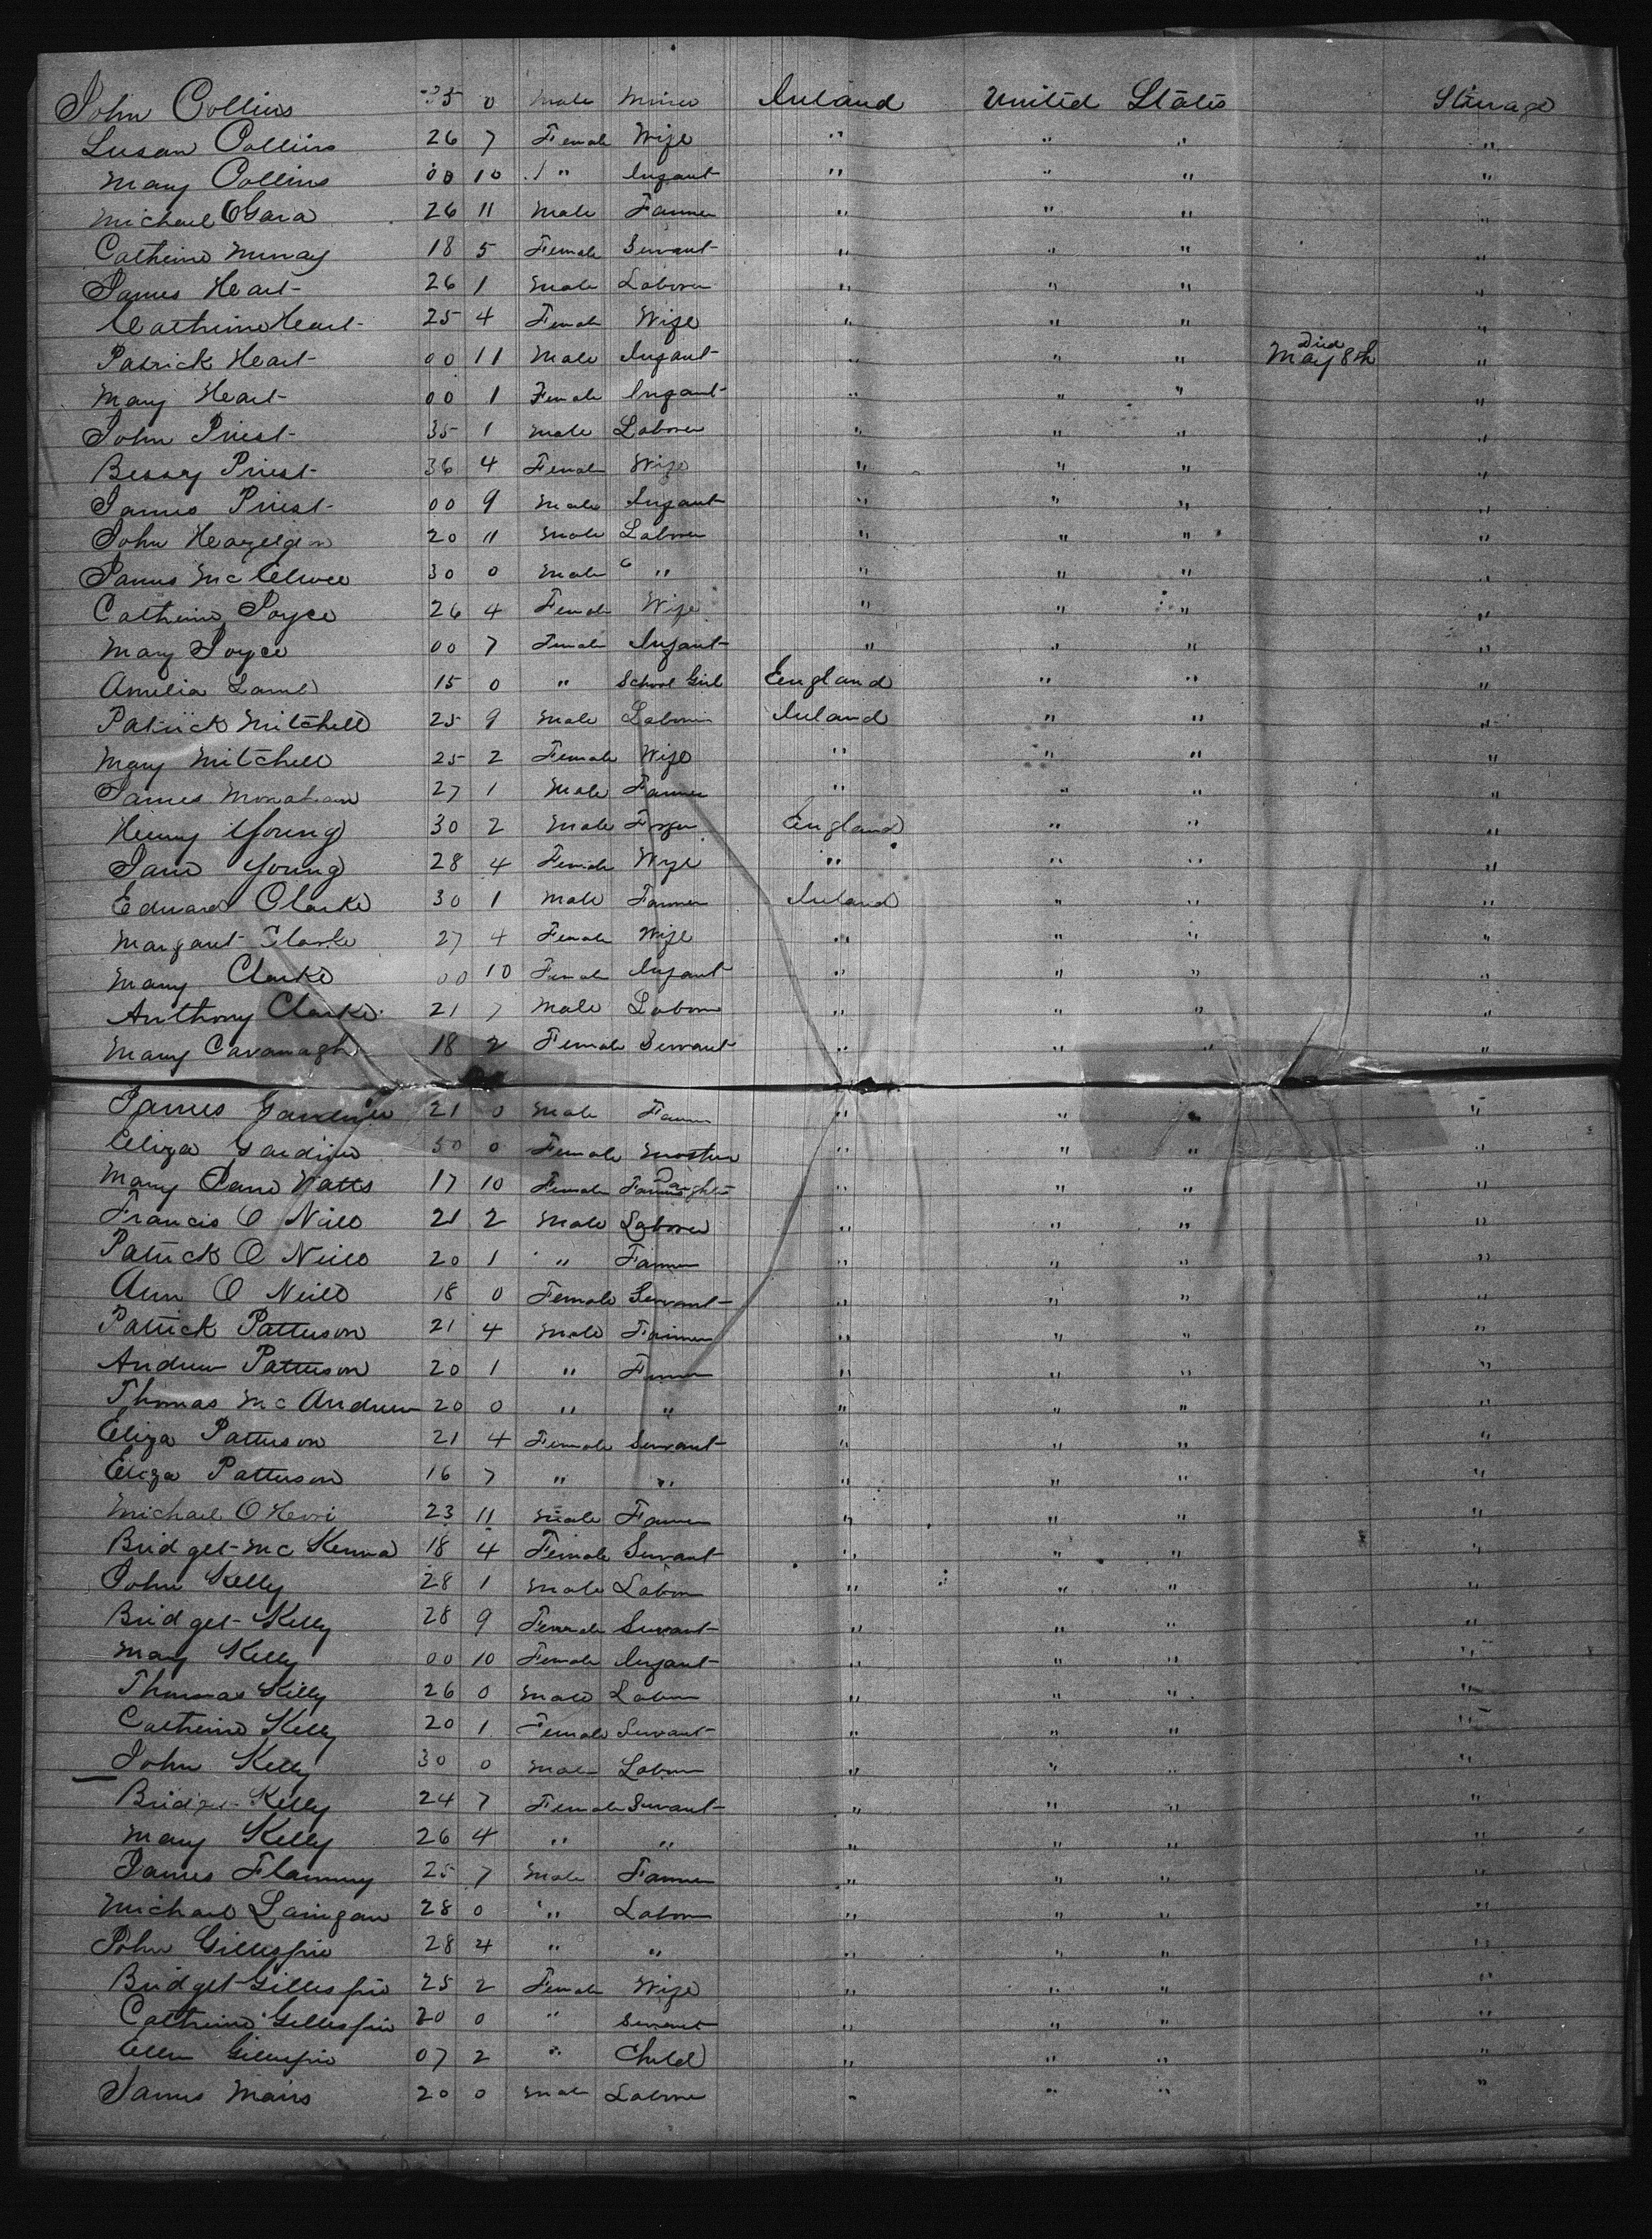 John Collins 25 0 Male Miner Ireland United States Steerage
Susan Collins 26 7 Female Wife " " " "
Mary Collins 00 10 " Infant " " " "
Michael OGara 26 11 Male Farmer " " " "
Catherine Murray 18 5 Female Servant " " " "
James Heart 26 1 Male Laborer " " " "
Catherine Heart 25 4 Female Wife " " " "
Patrick Heart 00 11 Male Infant " " " Died May 8th "
Mary Heart 00 1 Female Infant " " " "
John Priest 35 1 Male Laborer " " " "
Bessy Priest 36 4 Female Wife " " " "
James Priest 00 9 Male Infant " " " "
John 20 11 Male Laborer " " " "
James 30 0 Male " " " " "
Catherine Joyce 26 4 Female Wife " " " "
Mary Joyce 00 7 Female Infant " " " "
Amelia Lamb 15 0 " School Girl England " " "
Patrick Mitchell 25 9 Male Laborer Ireland " " "
Mary Mitchell 25 2 Female Wife " " " "
James Monahan 27 1 Male Farmer " " " "
Henry Young 30 2 Male England " " "
Jane Young 28 4 Female Wife " " " "
Edward Clarke 30 1 Male Farmer Ireland " " "
Margaret Clarke 27 4 Female Wife " " " "
Mary Clarke 00 10 Female Infant " " " "
Anthony Clarke 21 7 Male Laborer " " " "
Mary Cavanagh 18 2 Female Servant " " " "
James Gardiner 21 0 Male Farmer " " " "
Eliza Gardiner 50 0 Female " " " "
Mary Jane Watts 17 10 Female Farmers Daughter " " " "
Francis O Neill 21 2 Male Laborer " " " "
Patrick O Neill 20 1 " Farmer " " " "
Ann O Neill 18 0 Female Servant " " " "
Patrick Patterson 21 4 Male Farmer " " " "
Andrew Patterson 20 1 " Farmer " " " "
Thomas Mc Andrew 20 0 " " " " " "
Eliza Patterson 21 4 Female Servant " " " "
Eliza Patterson 16 7 " " " " " "
Michael 23 11 Male Farmer " " " "
Bridget Mc Kenna 18 4 Female Servant " " " "
John Kelly 28 1 Male Laborer " " " "
Bridget Kelly 28 9 Female Servant " " " "
Mary Kelly 00 10 Female Infant " " " "
Thomas Kelly 26 0 Male Laborer " " " "
Catherine Kelly 20 1 Female Servant " " " "
John Kelly 30 0 Male Laborer " " " "
Bridget Kelly 24 7 Female Servant " " " "
Mary Kelly 26 4 " " " " " "
James Flannery 25 7 Male Farmer " " " "
Michael Lanigan 28 0 " Laborer " " " "
John Gillespie 28 4 " " " " " "
Bridget Gillespie 25 2 Female Wife " " " "
Catherine Gillespie 20 0 " Servant " " " "
Ellen Gillespie 07 2 " Child " " " "
James Mairs 20 0 Male Laborer " " " "